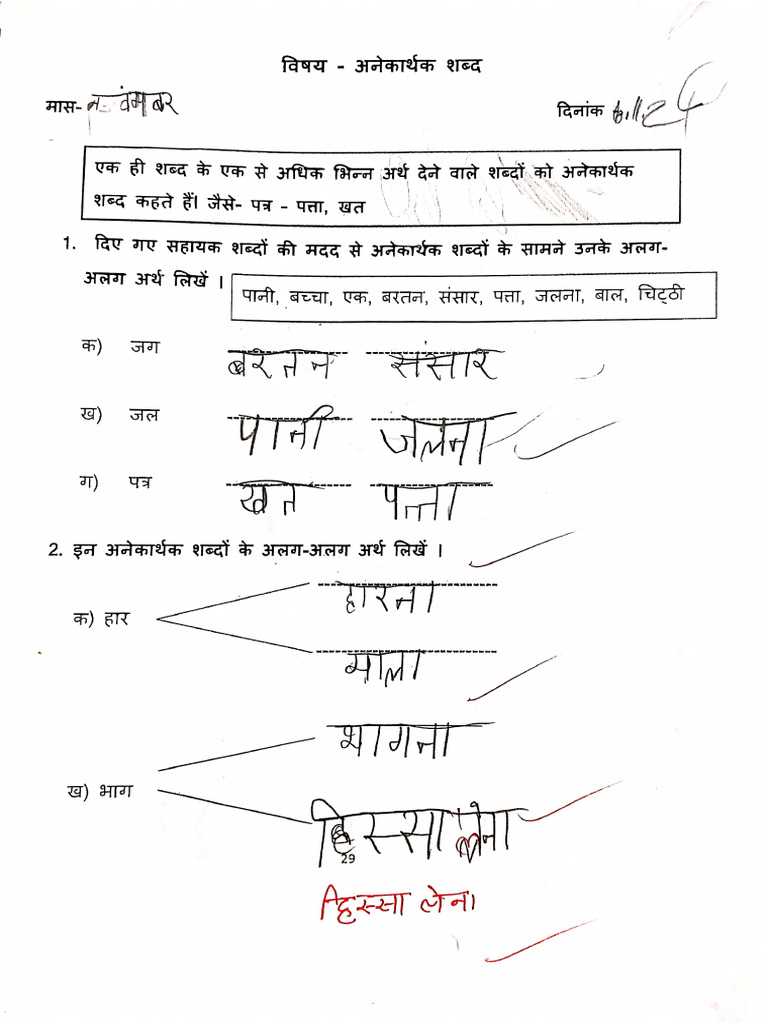 विषय - अनेकार्थक शब्द
मास- नवंम बर दिनांक 6.11.24
एक ही शब्द के एक से अधिक भिन्न अर्थ देने वाले शब्दों को अनेकार्थक
शब्द कहते हैं। जैसे- पत्र - पत्ता, खत
1. दिए गए सहायक शब्दों की मदद से अनेकार्थक शब्दों के सामने उनके अलग-
अलग अर्थ लिखें ।
पानी, बच्चा, एक, बरतन, संसार, पत्ता, जलना, बाल, चिट्ठी
क) जग बरतन संसार
ख) जल पानी जलना
ग) पत्र खत पत्ता
2. इन अनेकार्थक शब्दों के अलग-अलग अर्थ लिखें ।
हारना
क) हार
माला
भागना
ख) भाग
हिस्सा लेना
29
हिस्सा लेना